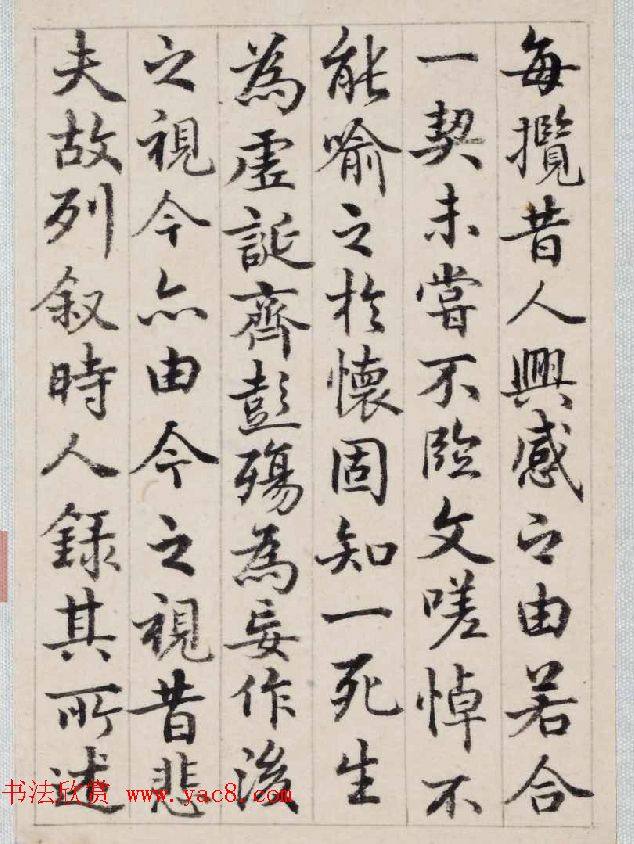 每攬昔人興感之由若合
一契未嘗不臨文嗟悼不
能喻之於懷固知一死生
為虛誕齊彭殤為妄作後
之視今亦由今之視昔悲
夫故列敘時人錄其所述
书法欣赏 www.yac8.com